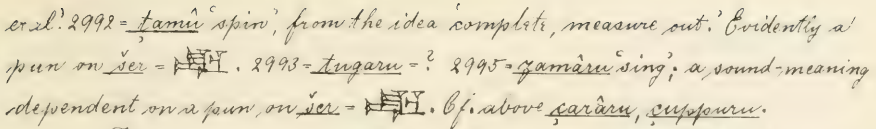 er al.' 2992 = tamû 'spin', from the idea 'complete, measure out.' Evidently a
pun on šer = . 2993 = tugaru = ? 2995 = zamâru 'sing'; a sound-meaning
dependent on a pun on šer = . Cf. above çarâru, çuppuru.